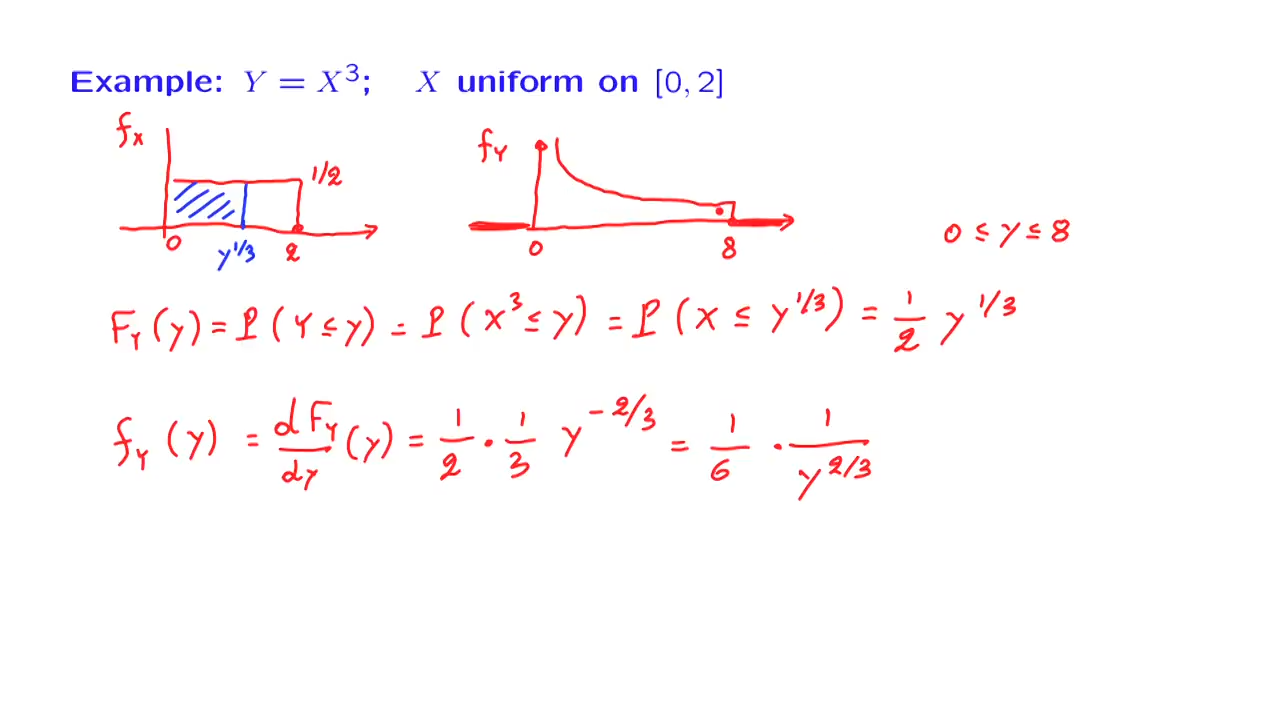 Example: Y = X³; X uniform on [0, 2]
f_X 1/2 0 y^{1/3} 2
f_Y 0 8
0 ≤ y ≤ 8
F_Y(y) = P(Y ≤ y) = P(X³ ≤ y) = P(X ≤ y^{1/3}) = 1/2 y^{1/3}
f_Y(y) = dF_Y/dy (y) = 1/2 · 1/3 y^{-2/3} = 1/6 · 1/y^{2/3}